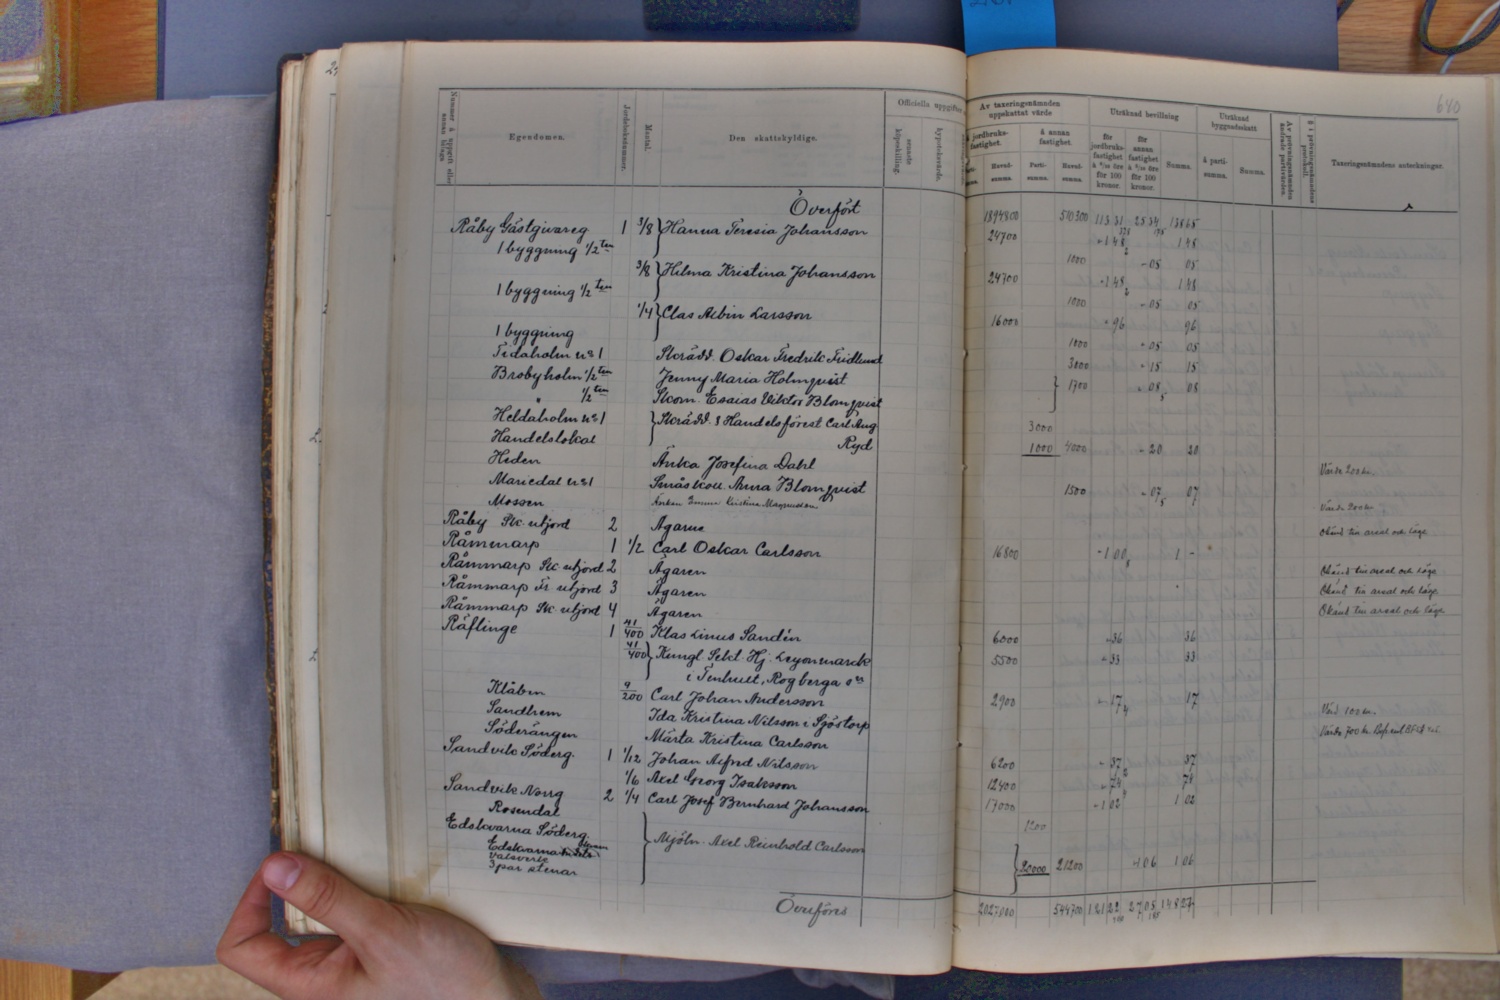 640
Nummer å uppgift eller annan bilaga
Egendomen.
Jordeboksnummer.
Mantal.
Den skattskyldige.
Officiella uppgifter
senaste köpeskilling.
hypoteksvärde.
Av taxeringsnämnden uppskattat värde
å jordbruksfastighet.
å annan fastighet.
Huvudsumma.
Partisumma.
Huvudsumma.
Uträknad bevillning
för jordbruksfastighet
för annan fastighet
för 100 kronor.
för 100 kronor.
Summa.
Uträknad byggnadsskatt
å partisumma.
Summa.
Taxeringsnämndens anteckningar.
Överfört 1894800 510300 113 31 25 34 138 65
Råby Gästgivareg 1 3/8 Hanna Teresia Johansson 24700 1 48 1 48
1 byggning 1/2 ten 1000 - 05 05
3/8 Hilma Kristina Johansson 24700 1 48 1 48
1 byggning 1/2 ten 1000 - 05 05
1/4 Clas Albin Larsson 16000 - 96 96
1 byggning 1000 - 05 05
Fidaholm No 1 Skrädd. Oskar Fredrik Fridlund 3000 - 15 15
Brobyholm 1/2 ten Jenny Maria Holmqvist 1700 - 08 08
" 1/2 ten Skom. Esaias Viktor Blomqvist
Heldaholm No 1 Skrädd. & Handelsförest Carl Aug 3000
Handelslokal Ryd 1000 4000 - 20 20
Heden Änka Josefina Dahl Värde 200 kr.
Mariedal No 1 Småskoll. Anna Blomqvist 1500 - 07 07
Mossen Änkan Kristina Magnusson Värde 200 kr.
Råby Sk. utjord 2 Ägarne Okänd till areal och läge
Råmmarp 1 1/2 Carl Oskar Carlsson 16800 - 1 00 1 -
Råmmarp Sk utjord 2 Ägaren Okänd till areal och läge
Råmmarp Fr utjord 3 Ägaren Okänd till areal och läge
Råmmarp Sk utjord 4 Ägaren Okänd till areal och läge
Räflinge 1 41/400 Klas Linus Sandén 6000 - 36 36
41/400 Kungl. Sekt. Hj. Leyonmarck 5500 - 33 33
i Tenhult, Rogberga sn
Klåben 9/200 Carl Johan Andersson 2900 - 17 17
Sandhem Ida Kristina Nilsson i Sjöstorp Värd 100 kr.
Söderängen Märta Kristina Carlsson Värde 700 kr.
Sandvik Söderg. 1 1/12 Johan Alfred Nilsson 6200 - 37 37
1/6 Axel Georg Isaksson 12400 - 74 74
Sandvik Norrg 2 1/4 Carl Josef Bernhard Johansson 17000 - 1 02 1 02
Rosendal
Edskvarna Söderg. 1200
Edskvarna Mjöln. Axel Reinhold Carlsson 20000 21200 - 1 06 1 06
valsverk
3 par stenar
Överföres 2027000 544700 121 22 27 05 148 27